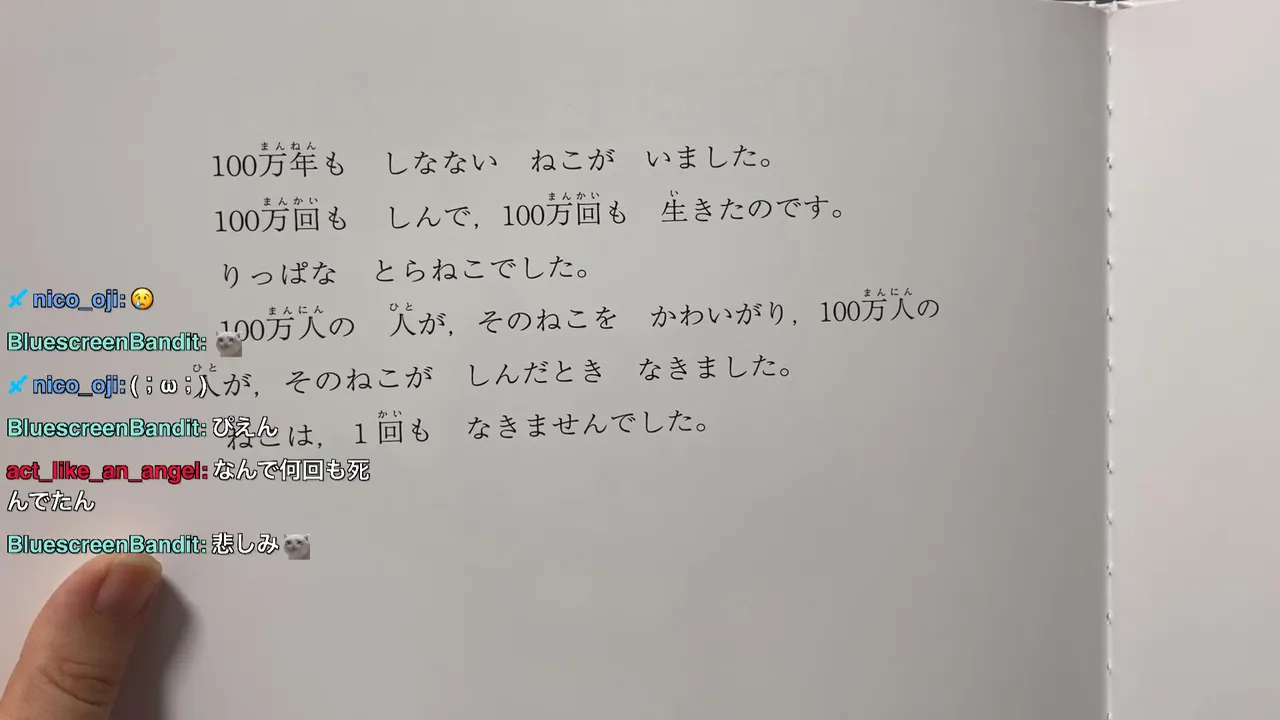 100万年も しなない ねこが いました。
100万回も しんで, 100万回も 生きたのです。
りっぱな とらねこでした。
100万人の 人が, そのねこを かわいがり, 100万人の
人が, そのねこが しんだとき なきました。
ねこは, 1回も なきませんでした。
nico_oji: 😢
BluescreenBandit:
nico_oji: (；ω；)
BluescreenBandit: ぴえん
act_like_an_angel: なんで何回も死
んでたん
BluescreenBandit: 悲しみ